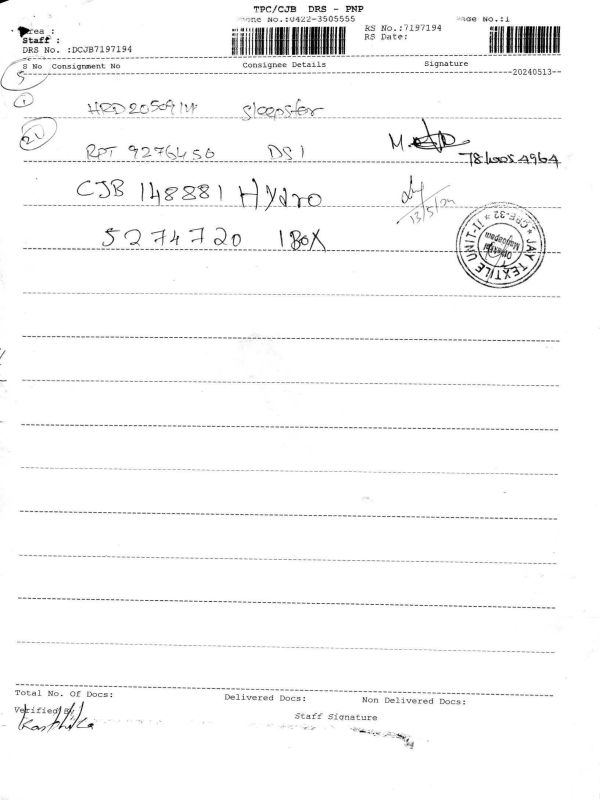 TPC/CJB DRS - PNP
Phone No.:0422-3505555
Page No.:1
Area :
Staff :
DRS No. :DCJB7197194
RS No.:7197194
RS Date:
S No Consignment No Consignee Details Signature
--20240513--
5
1 Sleepster
20 RPT 9276450 DS1 M.
CJB 148881 Hydro
13/5/24
5274720 1 BOX
★ JAY TEXTILE UNIT-II ★ CBE-32
Total No. Of Docs: Delivered Docs: Non Delivered Docs:
Verified By
Staff Signature
Karthika